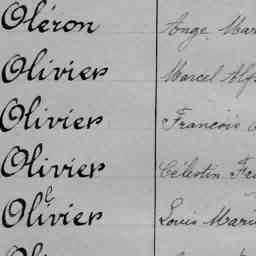 Oléron Ange Mar
Olivier Marcel Alf
Olivier François
Olivier Célestin Fr
Olivier Louis Mari